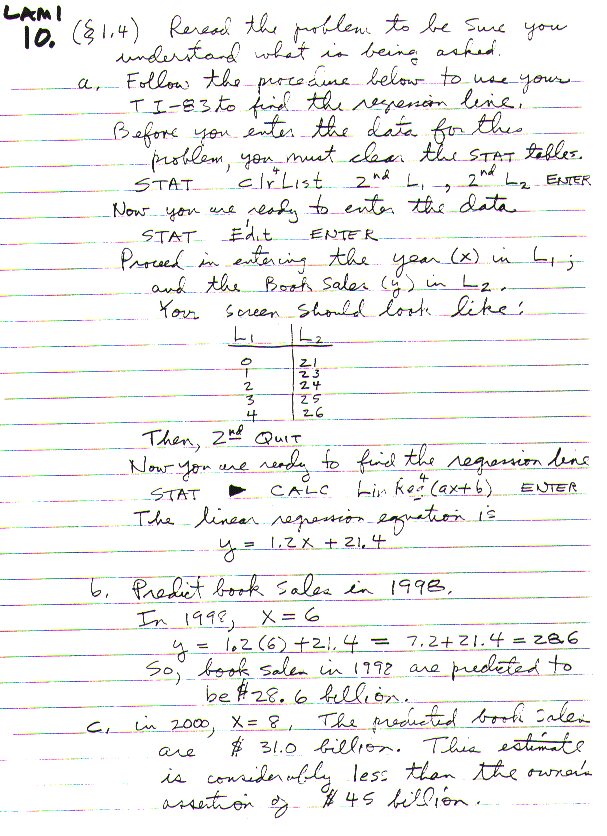 LAM1
10. (§1.4) Reread the problem to be sure you
understand what is being asked.
a. Follow the procedure below to use your
TI-83 to find the regression line.
Before you enter the data for this
problem, you must clear the STAT tables.
STAT clr⁴List 2nd L₁ , 2nd L₂ ENTER
Now you are ready to enter the data
STAT Edit ENTER
Proceed in entering the year (x) in L₁ ;
and the Book Sales (y) in L₂.
Your screen should look like:
L₁ L₂
0 21
1 23
2 24
3 25
4 26
Then, 2nd QUIT
Now you are ready to find the regression line
STAT ▶ CALC LinReg⁴(ax+b) ENTER
The linear regression equation is
y = 1.2x + 21.4
b. Predict book sales in 1998.
In 1998, x = 6
y = 1.2(6) + 21.4 = 7.2 + 21.4 = 28.6
So, book sales in 1998 are predicted to
be $28.6 billion.
c. in 2000, x = 8. The predicted book sales
are $31.0 billion. This estimate
is considerably less than the owner's
assertion of $45 billion.